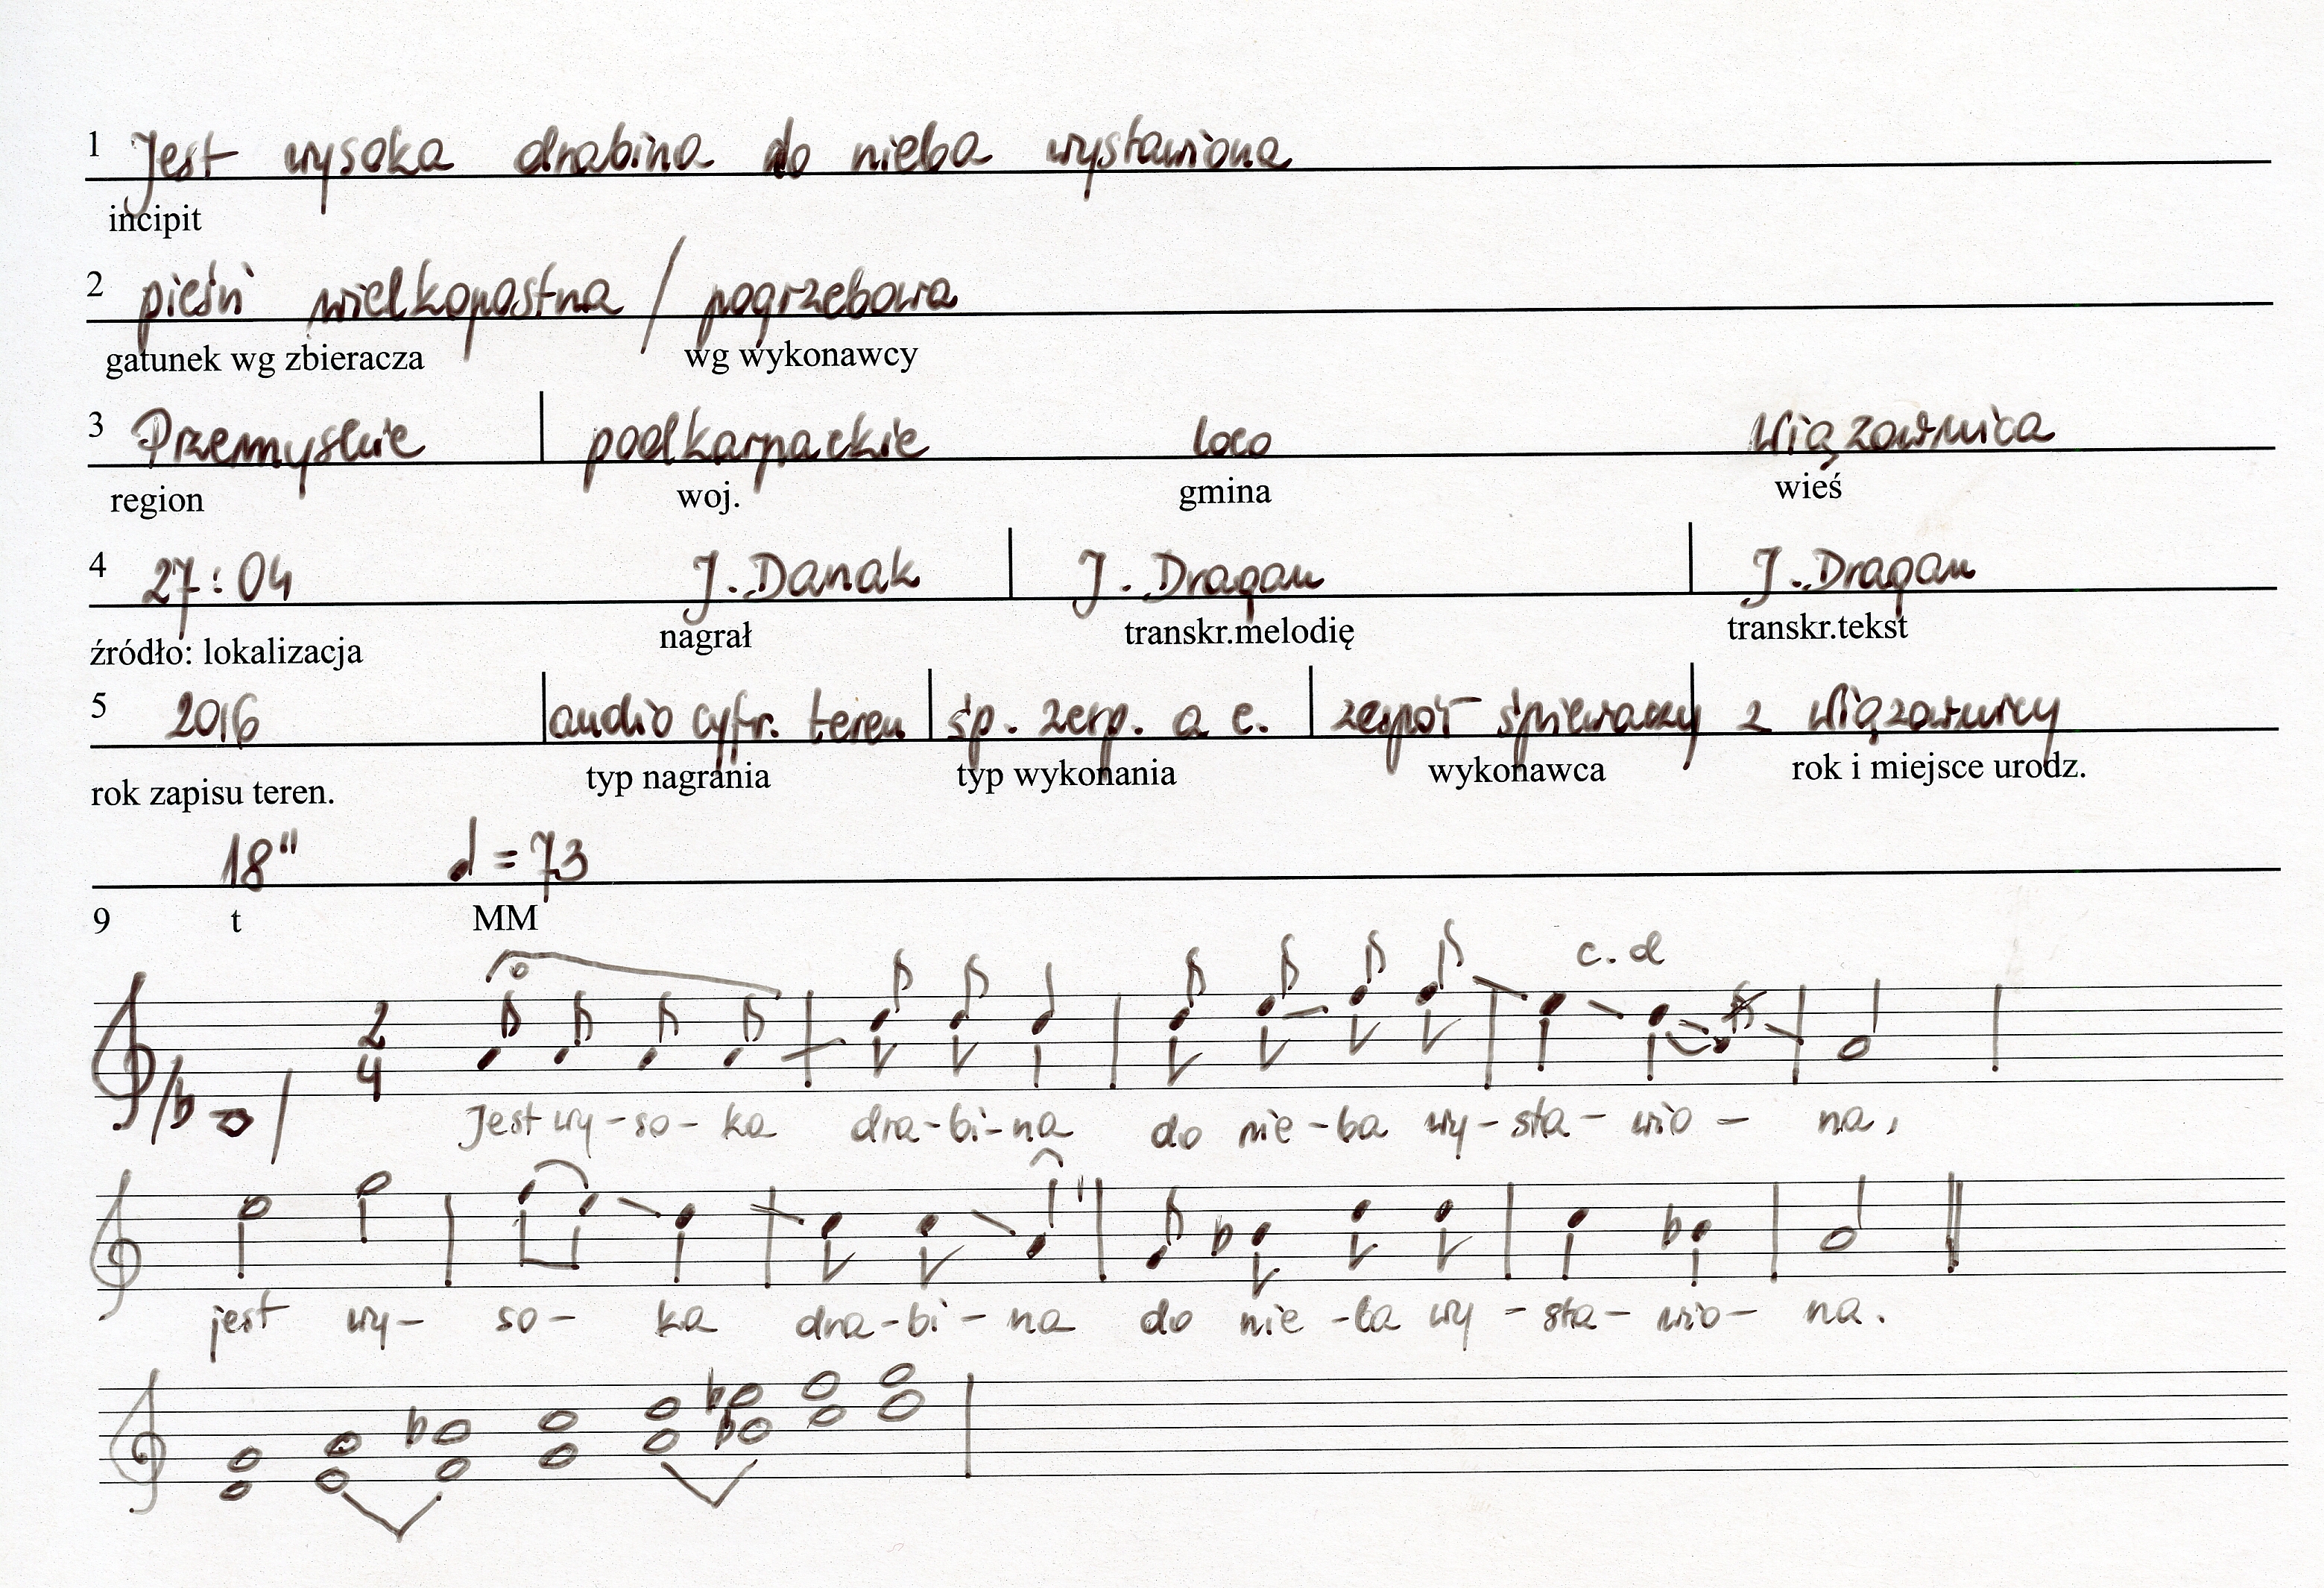 1 Jest wysoka drabina do nieba wystawiona
incipit
2 pieśń wielkopostna / pogrzebowa
gatunek wg zbieracza wg wykonawcy
3 Przemyskie podkarpackie loco Wiązownica
region woj. gmina wieś
4 27:04 J. Danak J. Dragan J. Dragan
źródło: lokalizacja nagrał transkr.melodię transkr.tekst
5 2016 audio cyfr. teren śp. zesp. a c. zespół śpiewaczy z Wiązownicy
rok zapisu teren. typ nagrania typ wykonania wykonawca rok i miejsce urodz.
18" ♩ = 73
9 t MM
c. d
2
4
Jest wy-so-ka dra-bi-na do nie-ba wy-sta-wio-na,
jest wy-so-ka dra-bi-na do nie-ba wy-sta-wio-na.